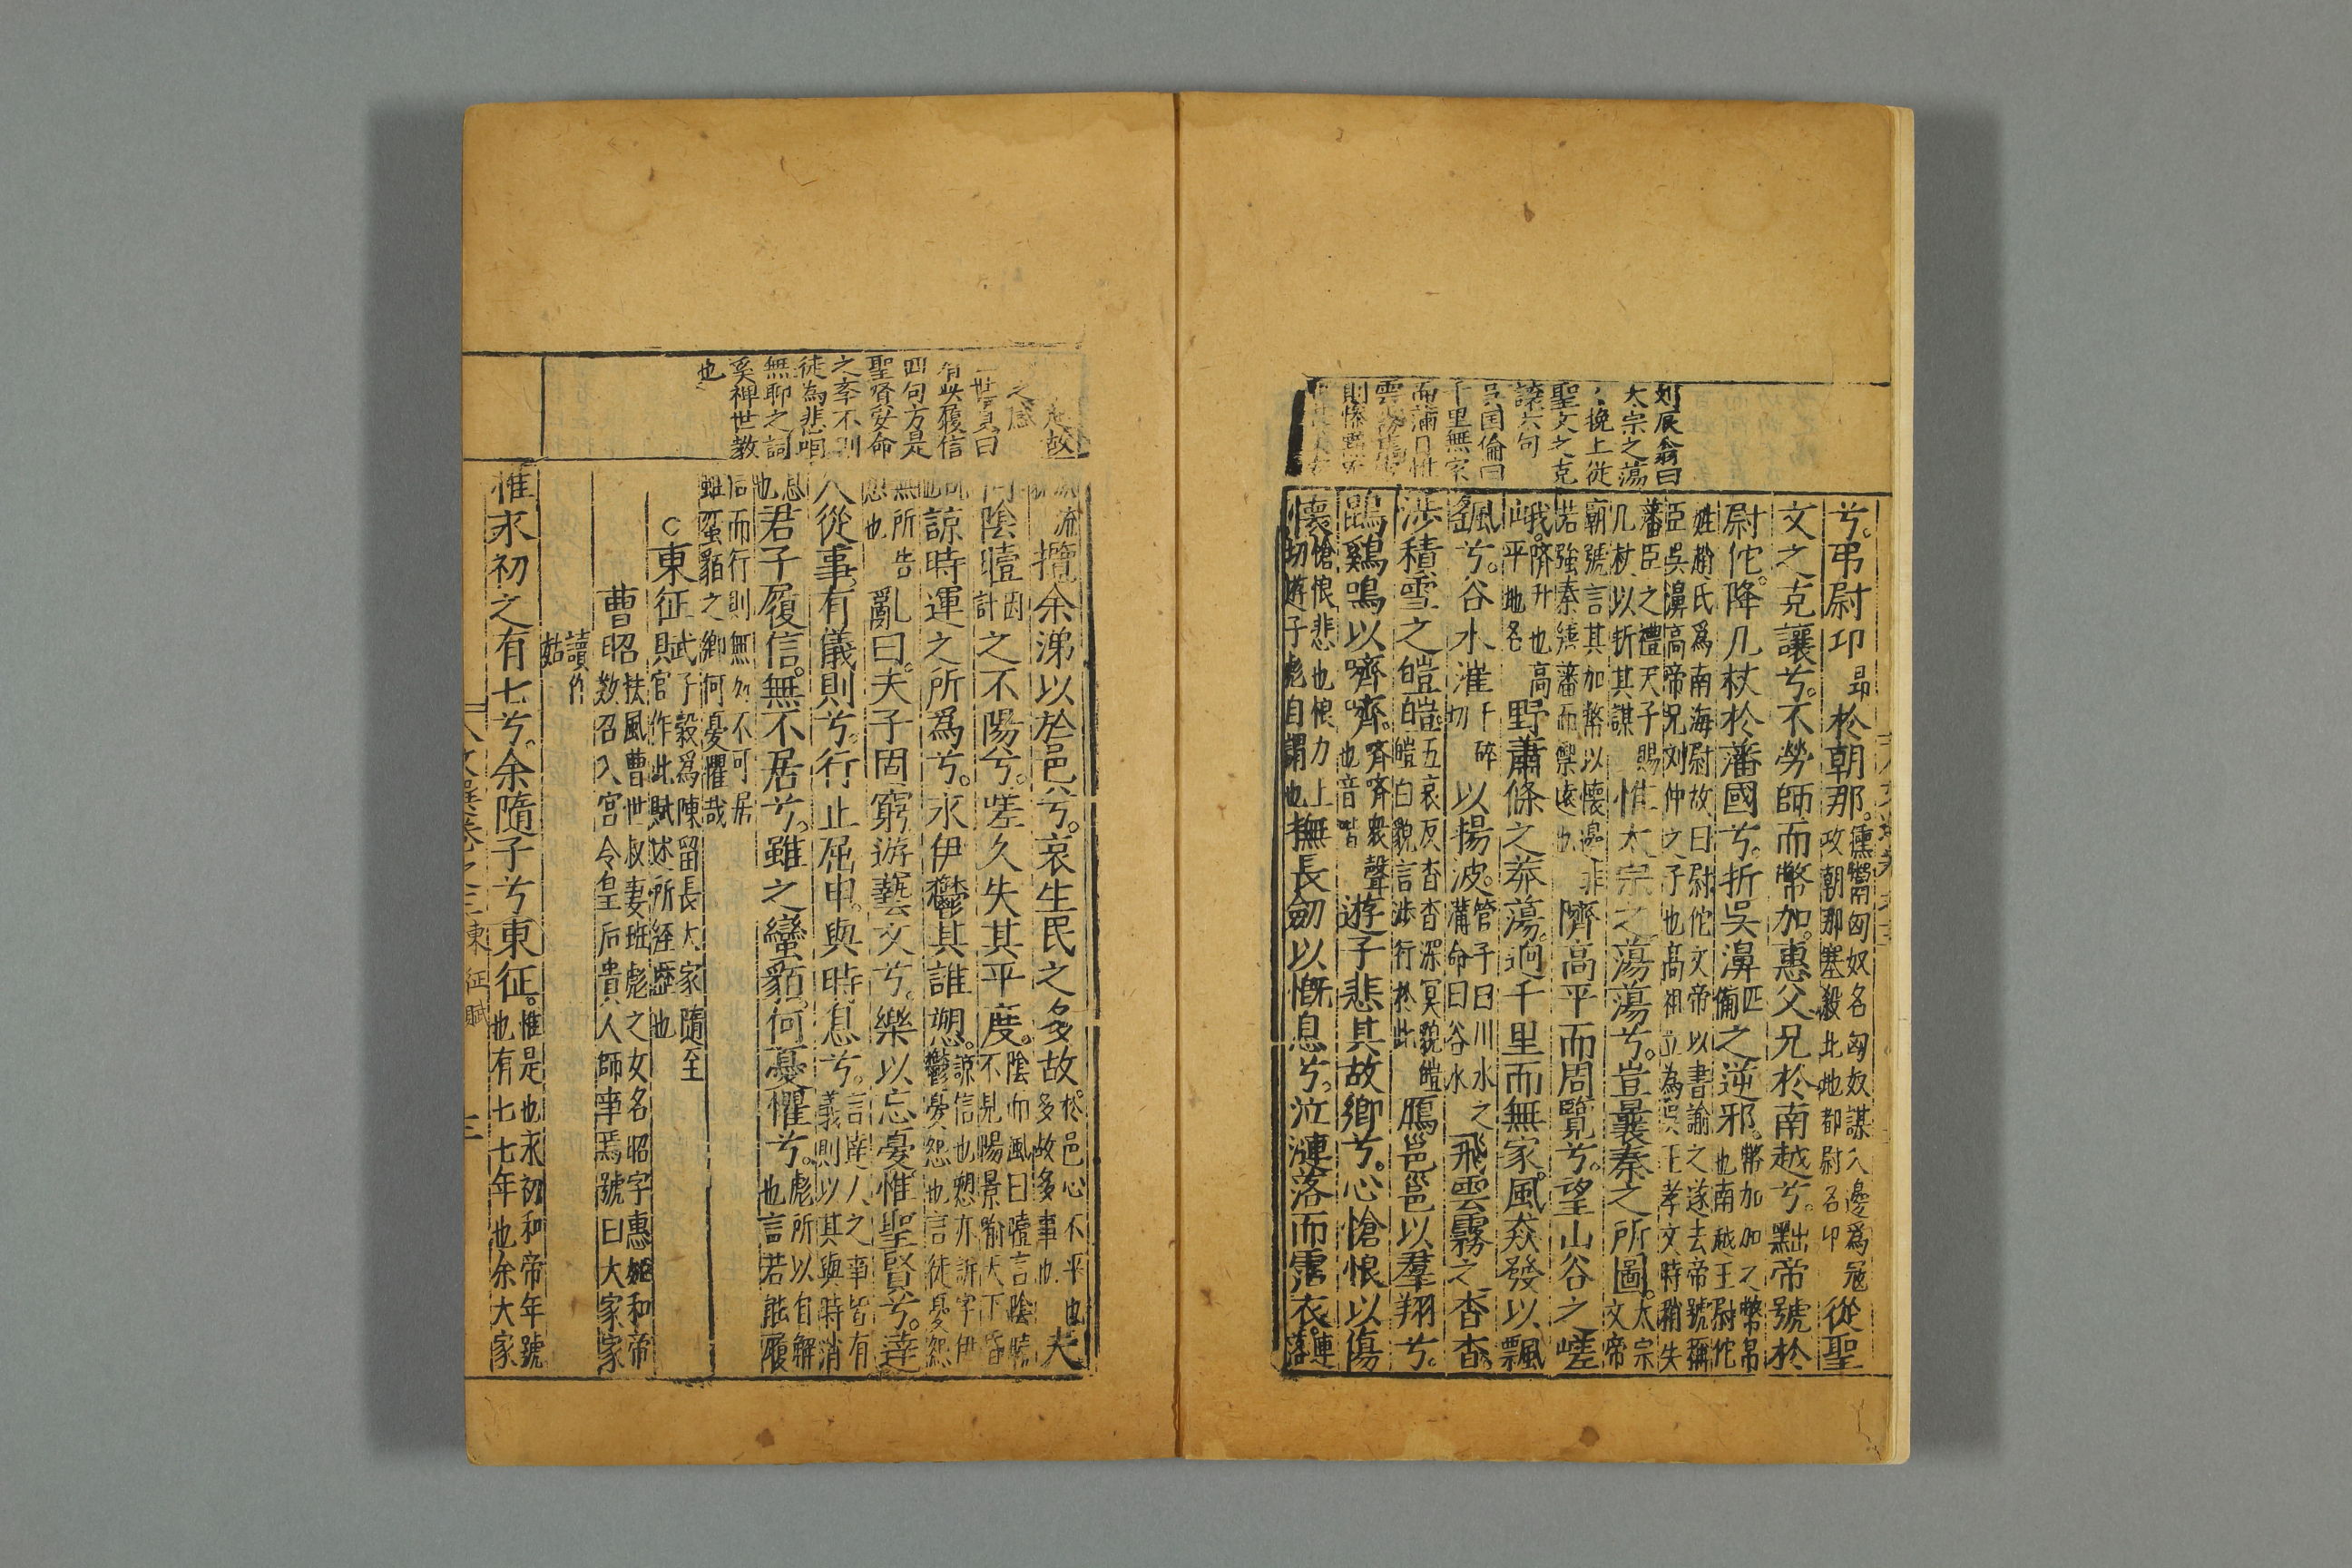 刘辰翁曰
太宗之蕩
〻挽上從
聖文之克
讓六句
吕国倫曰
千里無家
兮弔尉卬昂於朝那獯鬻匈奴名匈奴謀入邊爲冦攻朝那塞殺北地都尉名卬從聖
文之克讓兮不勞師而幣加惠父兄於南越兮黜帝號於
尉佗降几杖於藩國兮折吳濞匹俻之逆邪幣加加之幣帛也南越王尉佗
姓趙氏爲南海尉故曰尉佗文帝以書諭之遂去帝號稱臣吳濞高帝兄刘仲之子也髙祖立為吳王孝文時稍失
藩臣之禮天子賜几杖以折其謀惟太宗之蕩蕩兮豈曩秦之所圖太宗文帝
廟號言其加幣以懷邊若強秦築藩而禦遠也非隮高平而周覽兮望山谷之嵯
峨隮升也高平地名野蕭條之莽蕩迥千里而無家風猋發以飄
颻兮谷水漼千碎切以揚波管子曰川水溝命曰谷水之飛雲霧之杳杳
涉積雪之皚皚五哀反杳杳深冥貌皚皚白貌言涉行於此鴈邕邕以羣翔兮
鵾鷄鳴以嚌嚌嚌嚌衆聲也音喈遊子悲其故鄉兮心愴悢以傷
懷愴悢悲也悢力上切遊子彪自謂也撫長劒以慨息兮泣漣落而霑衣漣落
起故
之感
四句方是
聖賢安命
之李不則
徒為悲咽
無聊之詞
奚裨世教
也
流攬余涕以於邑兮哀生民之多故於邑心不平也多故多事也夫
何陰曀因計之不陽兮嗟久失其平度陰而風曰曀言陰曀不見陽景喻天下昏
諒時運之所爲兮永伊鬱其誰愬諒信也愬亦訴字伊鬱憂怨也言徒憂怨
無所告愬也亂曰夫子固窮遊藝文兮樂以忘憂惟聖賢兮達
人從事有儀則兮行止屈申與時息兮言達人之事皆有義則以其與時消
息也君子履信無不居兮雖之蠻貊何憂懼兮彪所以自解也言若能履
信而行則無处不可居雖蛮貊之鄉何憂懼哉
東征賦子穀爲陳留長大家隨至官作此賦述所経歷也
曹昭扶風曹世叔妻班彪之女名昭字惠姬和帝数召入宮令皇后貴人師事焉號曰大家家
讀作姑
惟永初之有七兮余隨子兮東征惟是也永初和帝年號也有七七年也余大家
文選卷之三東征賦